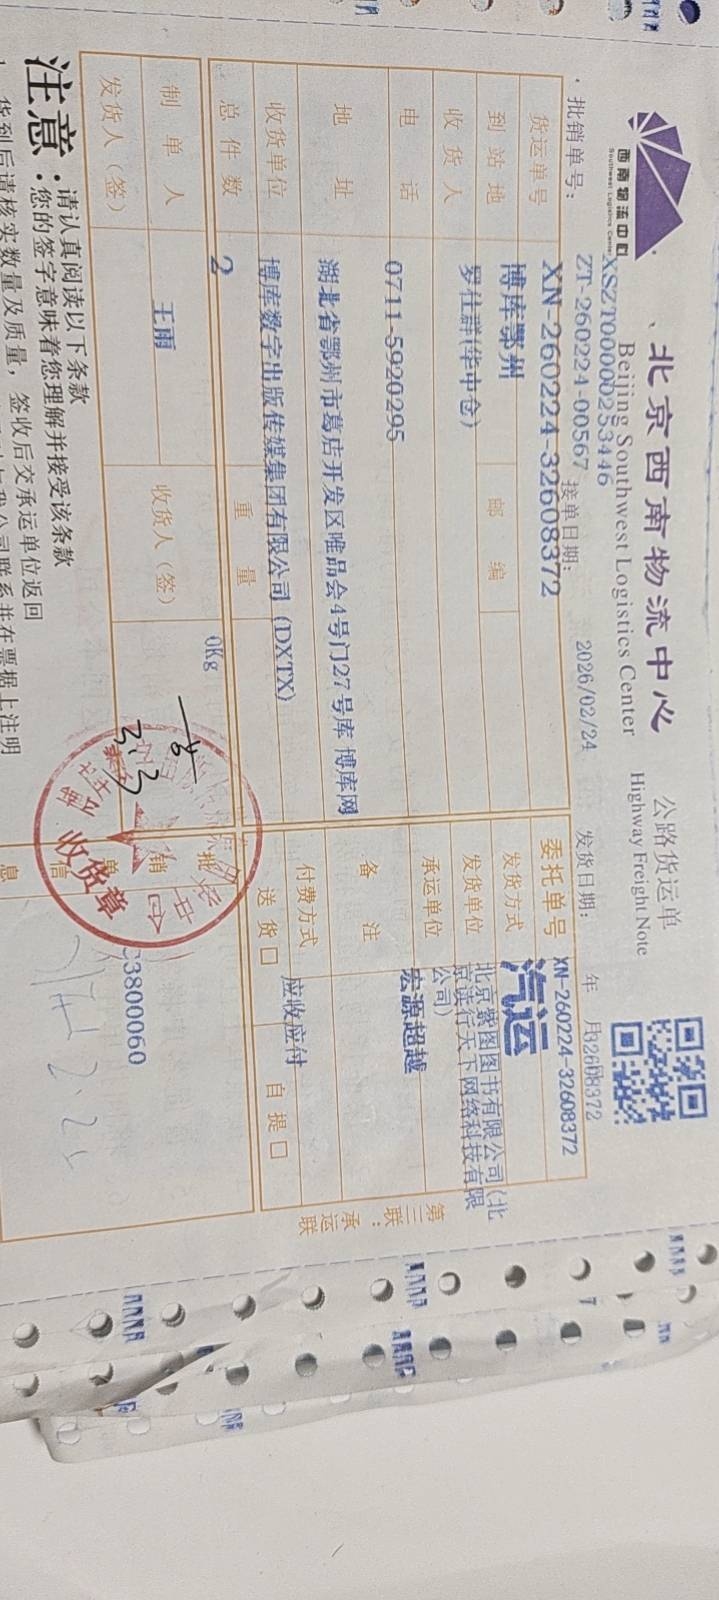 西南物流中心
Southwest Logistics Center
北京西南物流中心
Beijing Southwest Logistics Center
公路货运单
Highway Freight Note
XSZT00000253446
批销单号: ZT-260224-00567
接单日期: 2026/02/24
发货日期: 年 月
32608372
货运单号 XN-260224-32608372
委托单号 XN-260224-32608372
到站地 博库鄂州
邮编
发货方式 汽运
收货人 罗仕群(华中仓)
发货单位 北京寮图图书有限公司(北京读行天下网络科技有限公司)
电话 0711-5920295
承运单位 宏源超越
地址 湖北省鄂州市葛店开发区唯品会4号门27号库 博库网
备注
收货单位 博库数字出版传媒集团有限公司(DXTX)
付费方式 应收应付
总件数 2
重量 0Kg
送货□ 自提□
制单人 王雨
收货人(签)
发货人(签)
批销单信息
C3800060
3.3
收货章
第三联:承运联
注意:
请认真阅读以下条款
您的签字意味着您理解并接受该条款
货到后请核实数量及质量,签收后交承运单位返回
我公司联系并在票据上注明